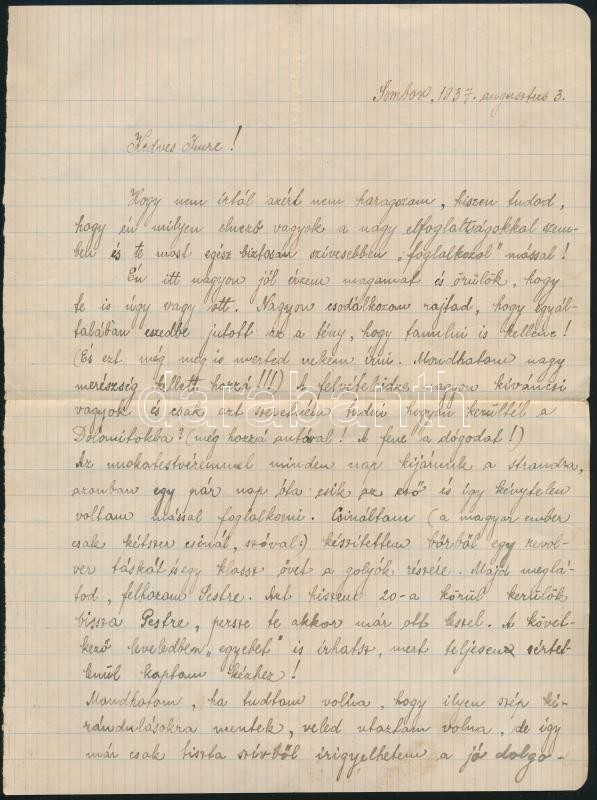 Sombor, 1937. augusztus 3.
Kedves Imre!
Hogy nem írtál azért nem haragszom, hiszen tudod,
hogy én milyen elnéző vagyok a nagy elfoglaltságokkal szem-
ben és te most egész biztosan szívesebben „foglalkozol" mással!
Én itt nagyon jól érzem magamat és örülök, hogy
te is úgy vagy ott. Nagyon csodálkozom rajtad, hogy egyál-
talában eszedbe jutott az a tény, hogy tanulni is kellene!
(És ezt még meg is merted nekem írni. Mondhatom nagy
merészség kellett hozzá!!!) A felvételidre nagyon kíváncsi
vagyok és csak azt szeretném tudni hogyan kerültél a
Dolomitokba? (még hozzá autóval! A fene a dógodat!)
Az unokatestvéremmel minden nap kijárunk a strandra,
azonban egy pár nap óta esik az eső és így kénytelen
voltam mással foglalkozni. Csináltam (a magyar ember
csak kétszer csinál, szóval:) készítettem bőrből egy revol-
ver táskát és egy klassz övet a golyók részére. Majd meglá-
tod, felhozom Pestre. Azt hiszem 20-a körül kerülök
vissza Pestre, persze te akkor már ott leszel. A követ-
kező leveledben „egyebet" is írhatsz, mert teljesen sértet-
lenül kaptam kézhez!
Mondhatom, ha tudtam volna, hogy ilyen szép ki-
rándulásokra mentek, veled utaztam volna, de így
már csak tiszta szívből irigyelhetem a jó dolgo-
darabanth